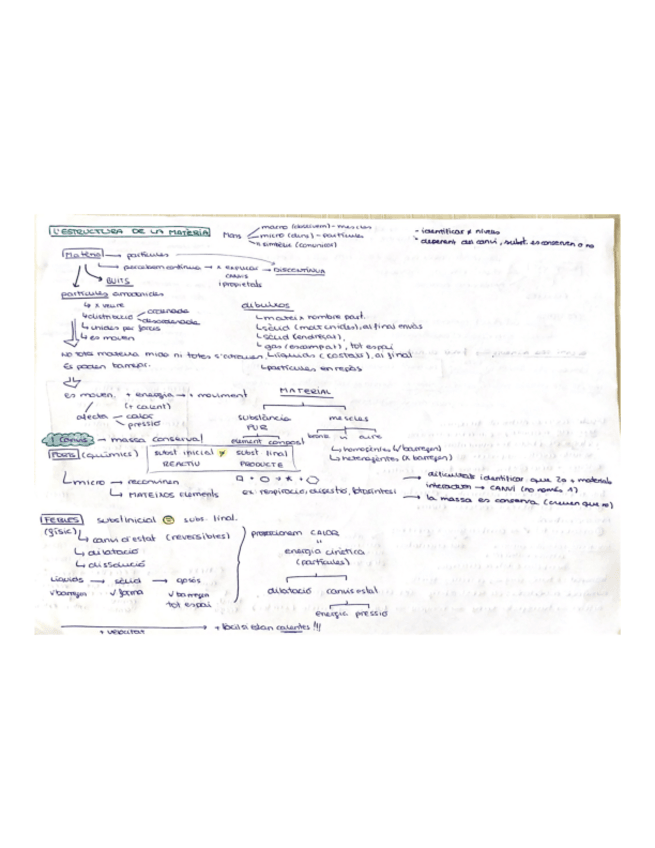 L'ESTRUCTURA DE LA MATÈRIA
Mons
macro (observem) - mescles
micro (duns) - partícules
simbòlic (comunicar)
- identificar ≠ nivells
- depenent del canvi, subst. es conserven o no
Matèria → partícules
percebem contínua → x explicar canvis i propietats → DISCONTÍNUA
BUITS
partícules
↳ x veure
↳ distribució
ordenada
desordenada
↳ unides per forces
↳ es mouen
dibuixos
↳ mateix nombre part.
↳ sòlid
↳ gas (escampat), tot espai
↳ líquids (costats), al final
↳ partícules en repòs
No tota matèria mida ni totes
Es poden barrejar.
Es mouen. + energia → + moviment
(+ calent)
afecta
calor
pressió
MATERIAL
substància PUR
mescles
element compost
↳ homogènies
↳ heterogènies
! Canvis → massa conserva!
FORTS (químics)
subst inicial ≠ subst final
REACTIU PRODUCTE
↳ micro → recombinen
↳ MATEIXOS elements
ex. respiració, digestió, fotosíntesi
→ dificultats identificar que 2 o + materials
interactuen → CANVI (no només 1)
→ la massa es conserva (creuen que no)
FEBLES subst inicial = subst. final.
(físic)
↳ canvi d'estat (reversibles)
↳ dilatació
↳ dissolució
proporcionem CALOR
energia cinètica
(partícules)
dilatació canvis estat
energia pressió
Líquids → sòlid → gasos
V barregen V forma V barregen
tot espai
+ velocitat
+ fàcil si estan calentes !!!